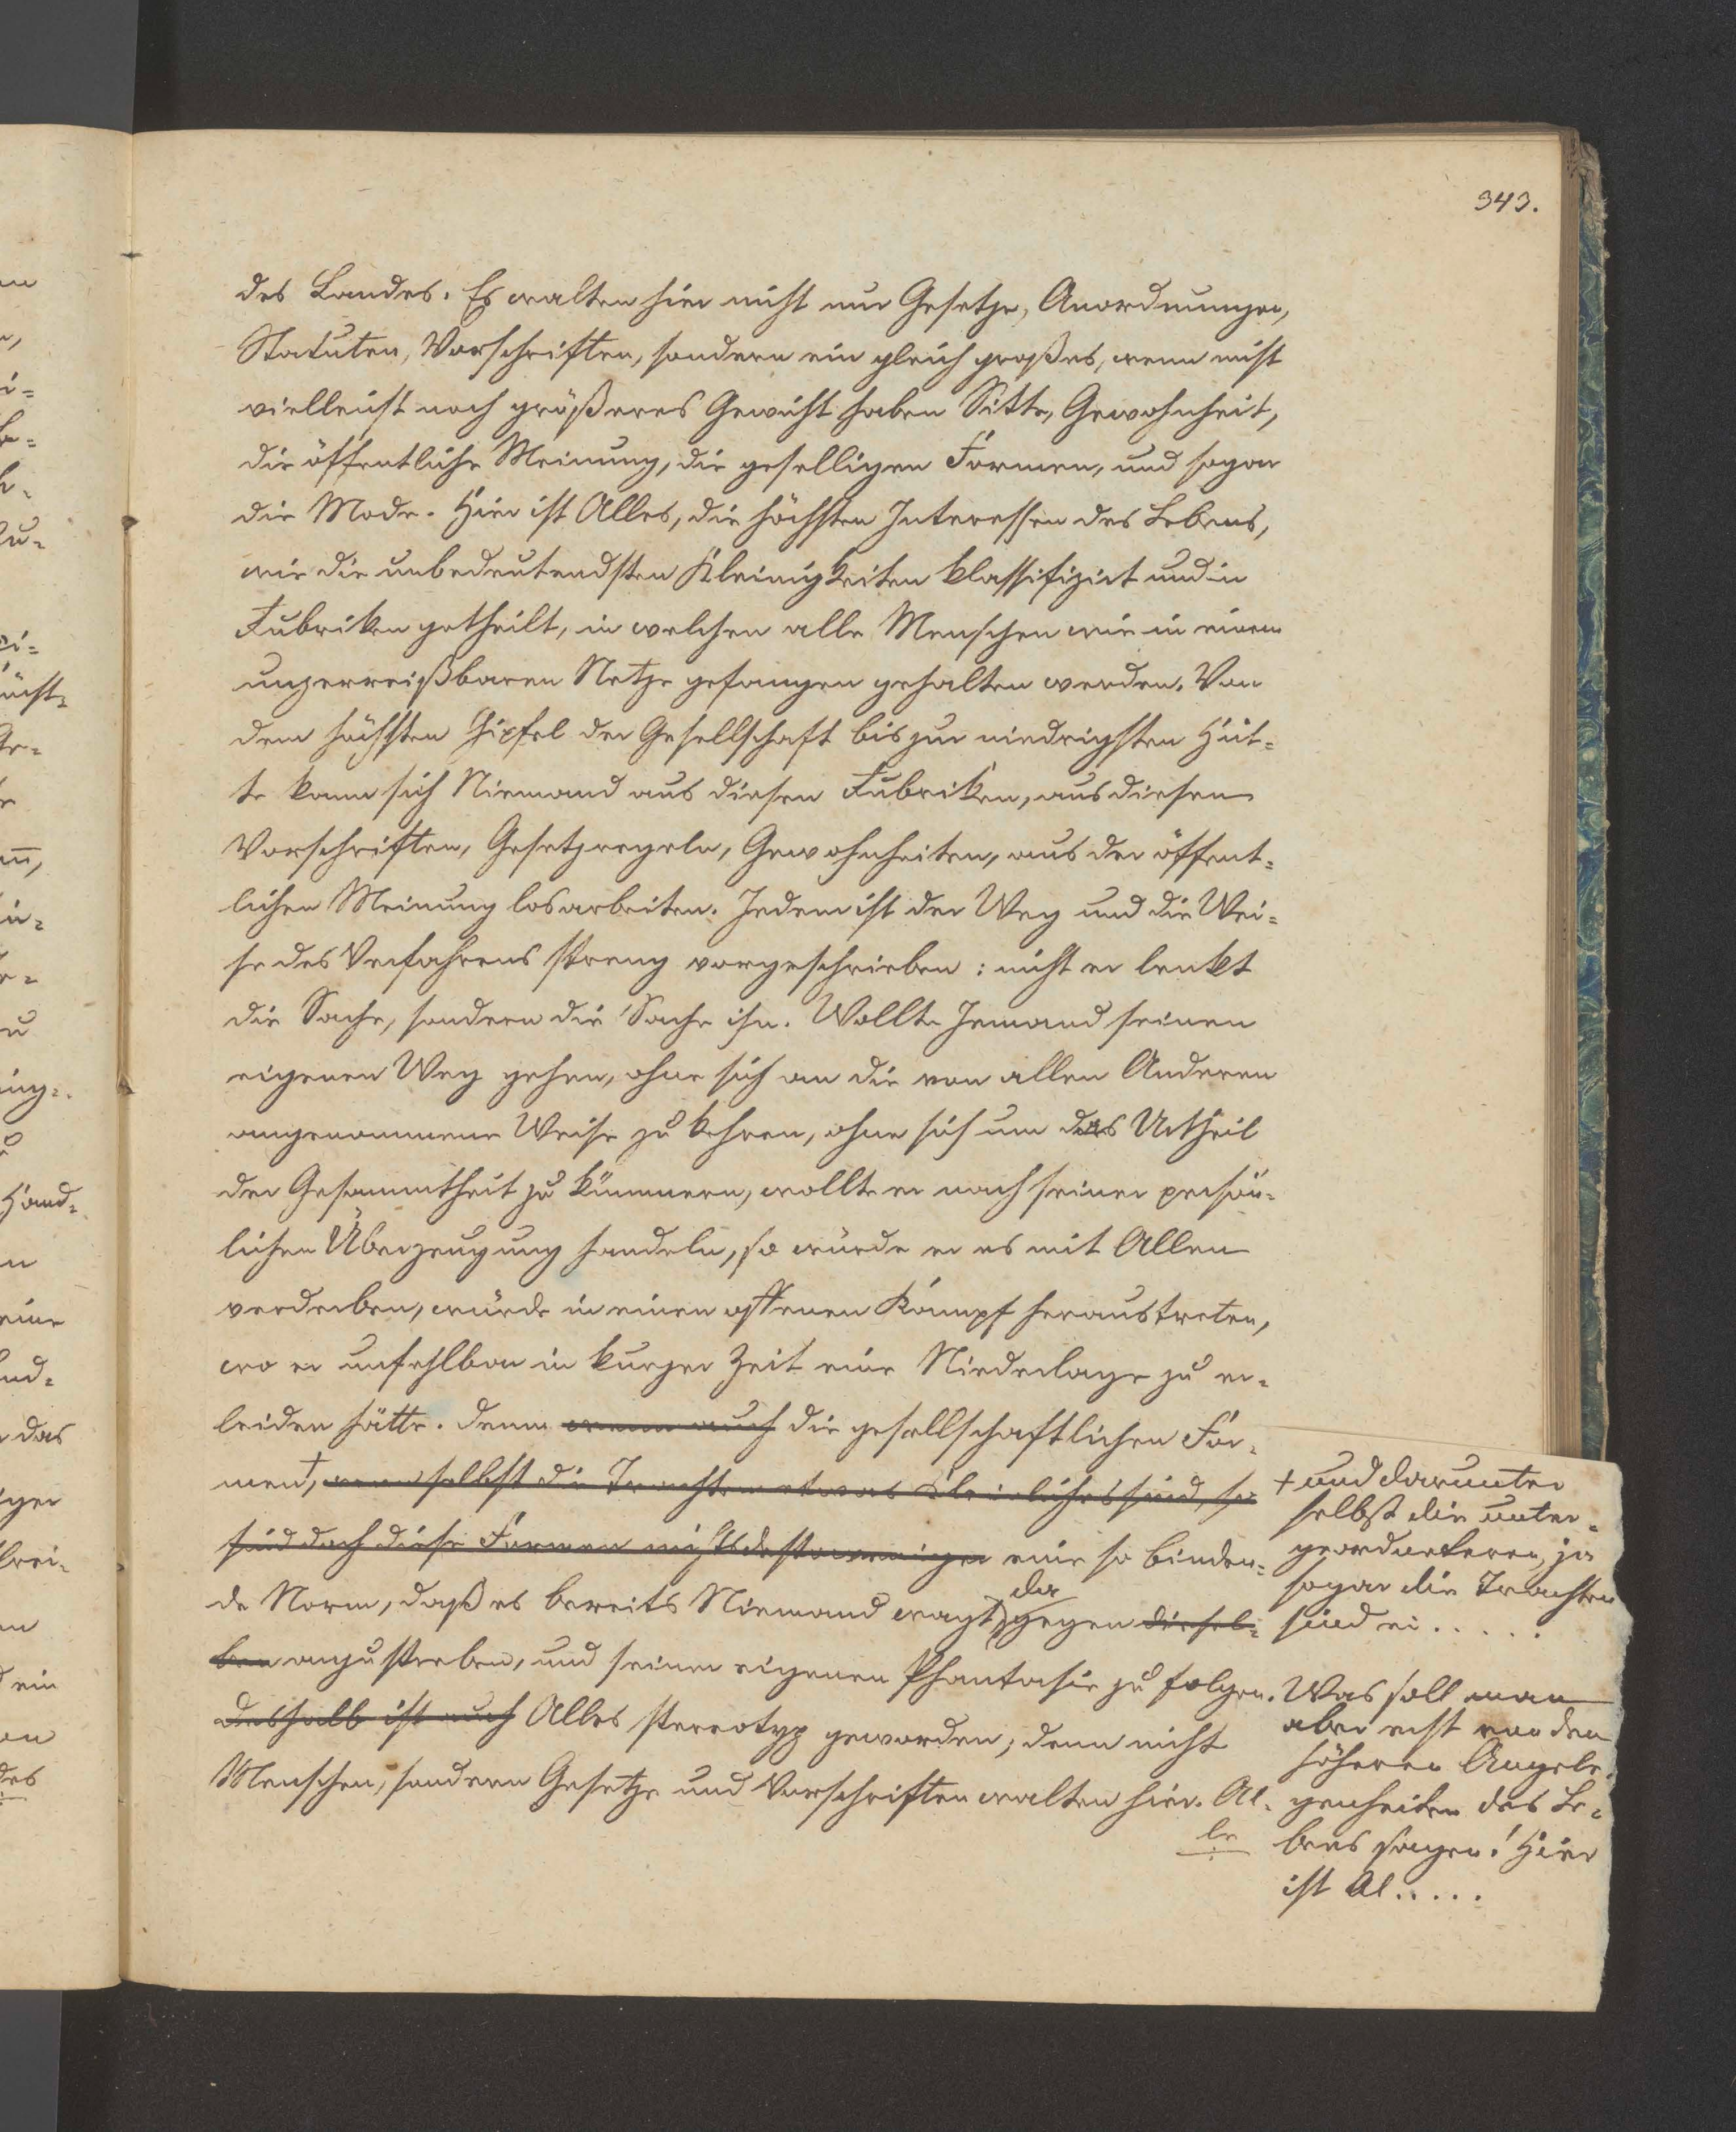 343.
des Landes. Es walten hier nicht nur Gesetze, Anordnungen,
Statuten, Vorschriften, sondern ein gleich großes, wenn nicht
vielleicht noch größeres Gewicht haben Sitte, Gewohnheit,
die öffentliche Meinung, die geselligen Formen, und sogar
die Mode. Hier ist Alles, die höchsten Interessen des Lebens,
wie die unbedeutendsten Kleinigkeiten klassifizirt und in
Rubriken getheilt, in welchen alle Menschen wie in einem
unzerreißbaren Netze gefangen gehalten werden. Von
dem höchsten Gipfel der Gesellschaft bis zur niedrigsten Hüt-
te kann sich Niemand aus diesen Rubriken, aus diesen
Vorschriften, Gesetzregeln, Gewohnheiten, aus der öffent-
lichen Meinung losarbeiten. Jedem ist der Weg und die Wei-
se des Verfahrens streng vorgeschrieben: nicht er lenkt
die Sache, sondern die Sache ihn. Wollte Jemand seinen
eigenen Weg gehen, ohne sich an die von allen Anderen
angenommene Weise zu kehren, ohne sich um das Urtheil
der Gesammtheit zu kümmern, wollte er nach seiner persön-
lichen Überzeugung handeln, so würde er es mit Allen
verderben, würde in einen offenen Kampf heraustreten,
wo er unfehlbar in kurzer Zeit eine Niederlage zu er-
leiden hätte. Denn wenn auch die gesellschaftlichen For-
men†, wenn selbst die Trachten etwas Kleinliches sind, so
sind doch diese Formen nichtsdestoweniger eine so binden-
de Norm, daß es bereits Niemand wagt, da gegen diesel-
ben anzustreben, und seiner eigenen Phantasie zu folgen.
Deshalb ist auch Alles stereotyp geworden; denn nicht
Menschen, sondern Gesetze und Vorschriften walten hier. Al-
le
† und darunter
selbst die unter-
geordneteren, ja
sogar die Trachten
sind ei . . . . .
Was soll man
aber erst von den
höheren Angele-
genheiten des Le-
bens sagen! Hier
ist Al . . . . .